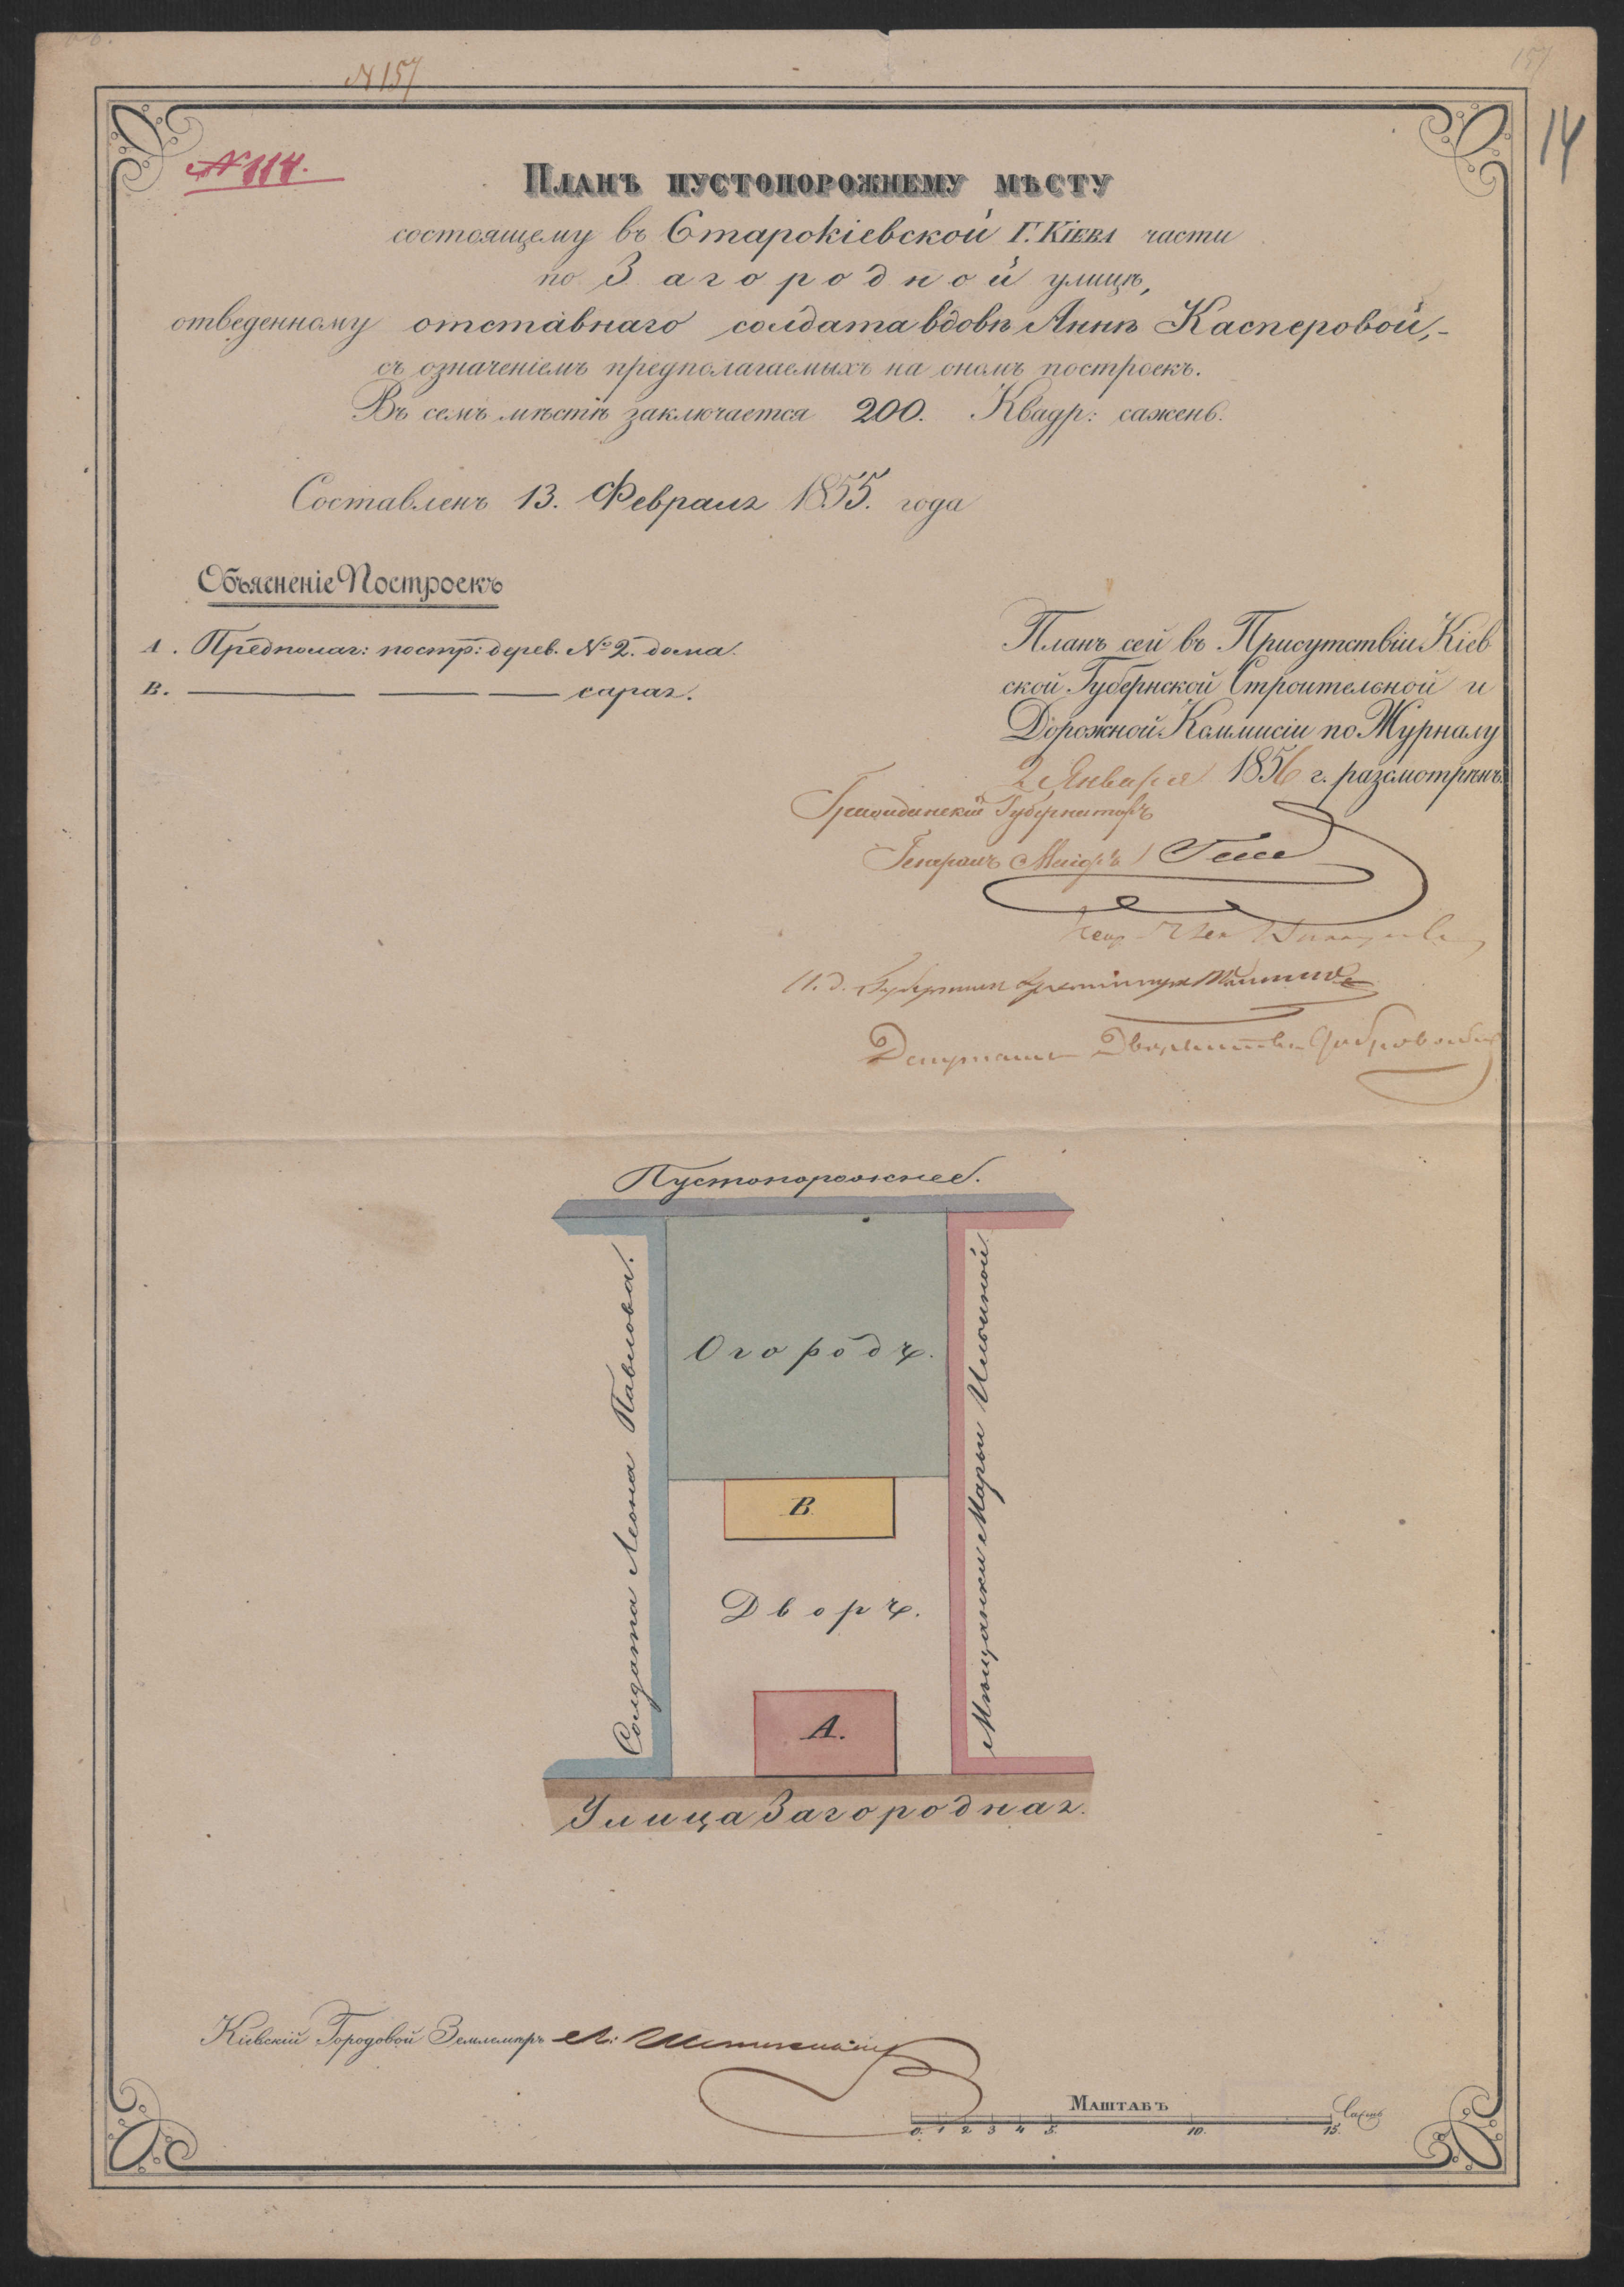 № 157
157
14
№ 114.
Планъ пустопорожнему мѣсту
состоящему въ Старокіевской Г. Кіева части
по Загородной улицѣ,
отведенному отставнаго солдата вдовѣ Аннѣ Касперовой,-
съ означеніемъ предполагаемыхъ на ономъ построекъ.
Въ семъ мѣстѣ заключается 200. Квадр: сажень.
Составленъ 13. Февраля 1855. года
Объясненіе Построекъ
А. Предполаг: постр: дерев. № 2. дома.
В. сарая.
Планъ сей въ Присутствіи Кіев
ской Губернской Строительной и
Дорожной Коммисіи по Журналу
2 Января 1856 г. разсмотрѣнъ
Гражданскій Губернаторъ
Генералъ Маіоръ Гессе
И. д. Губернск
Депутатъ Дворянства
Пустопорожнее.
Солдата Леона Павлова.
Огородъ.
Мѣщанки Марьи Ильиной
В
Дворъ.
А.
Улица Загородная.
Кіевскій Городовой Землемѣръ
Маштабъ
Сажень
0. 1 2 3 4 5. 10. 15.